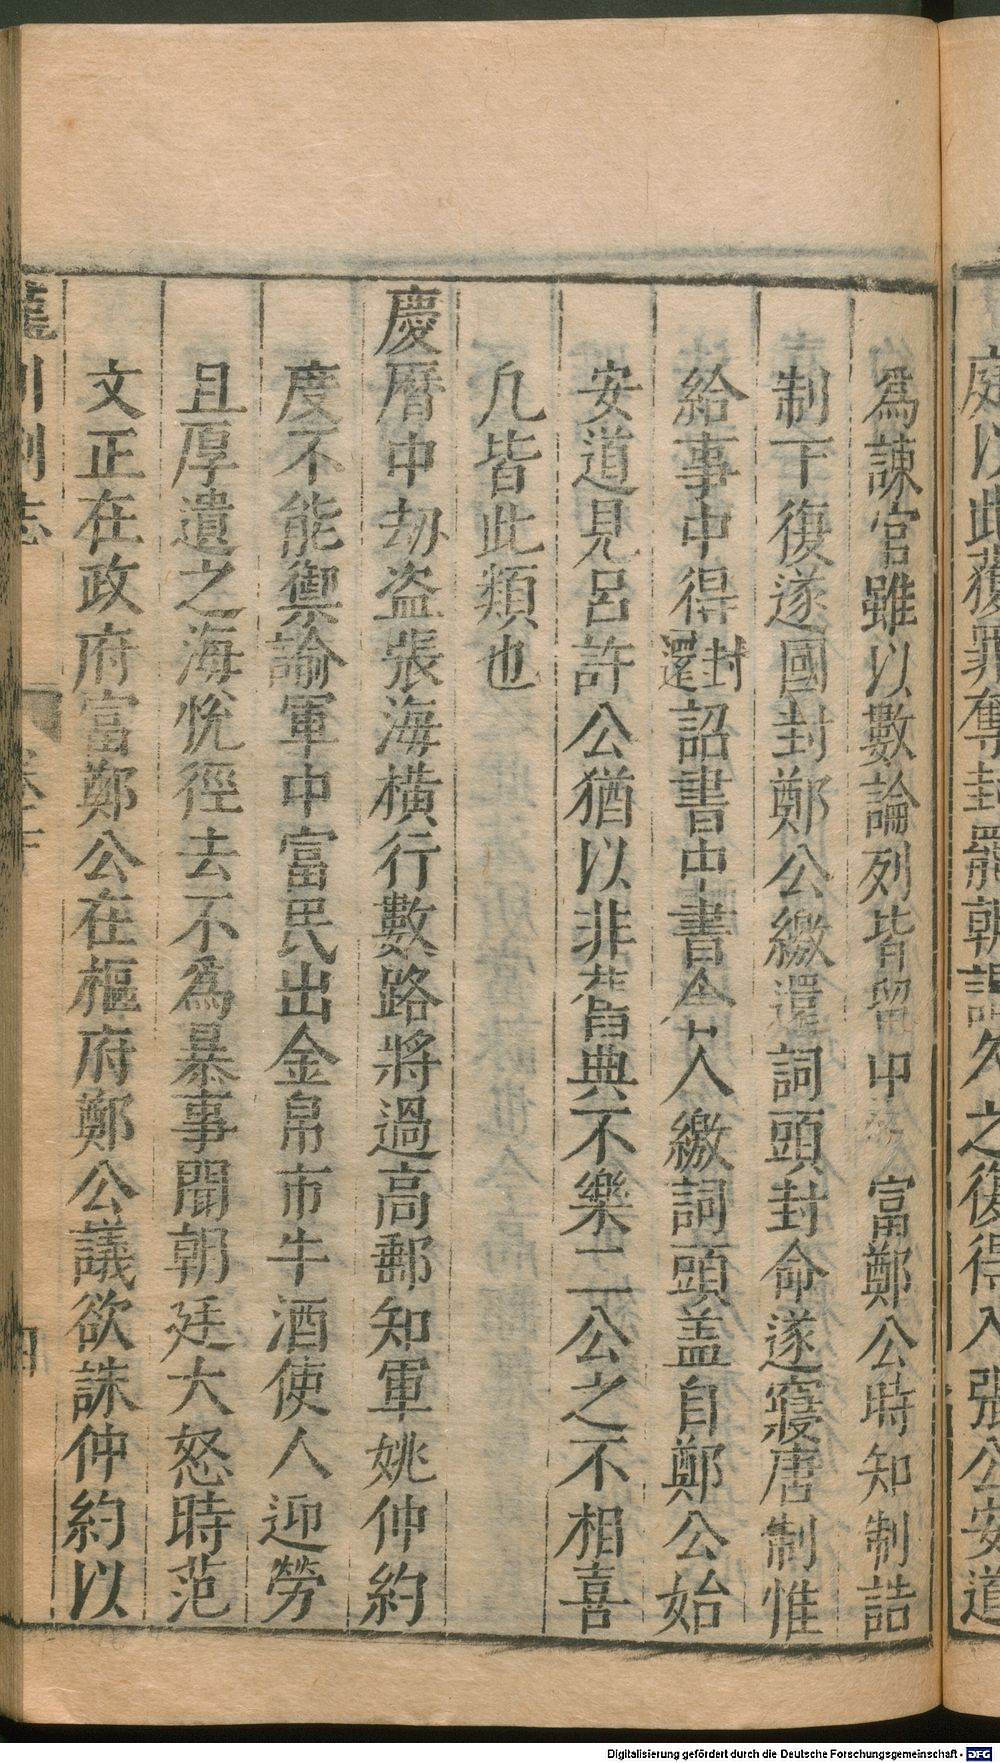 庭以此獲罪奪封罷朝謁久之復得入張公安道
爲諫官雖以數論列皆留中 富鄭公時知制誥
制下復遂國封鄭公繳還詞頭封命遂寢唐制惟
給事中得封還詔書中書舍人繳詞頭盖自鄭公始
安道見呂許公猶以非舊典不樂二公之不相喜
凡皆此類也
慶曆中劫盗張海橫行數路將過高郵知軍姚仲約
度不能禦諭軍中富民出金帛市牛酒使人迎勞
且厚遺之海悅徑去不爲暴事聞朝廷大怒時范
文正在政府富鄭公在樞府鄭公議欲誅仲約以
龍川別志
Digitalisierung gefördert durch die Deutsche Forschungsgemeinschaft - DFG